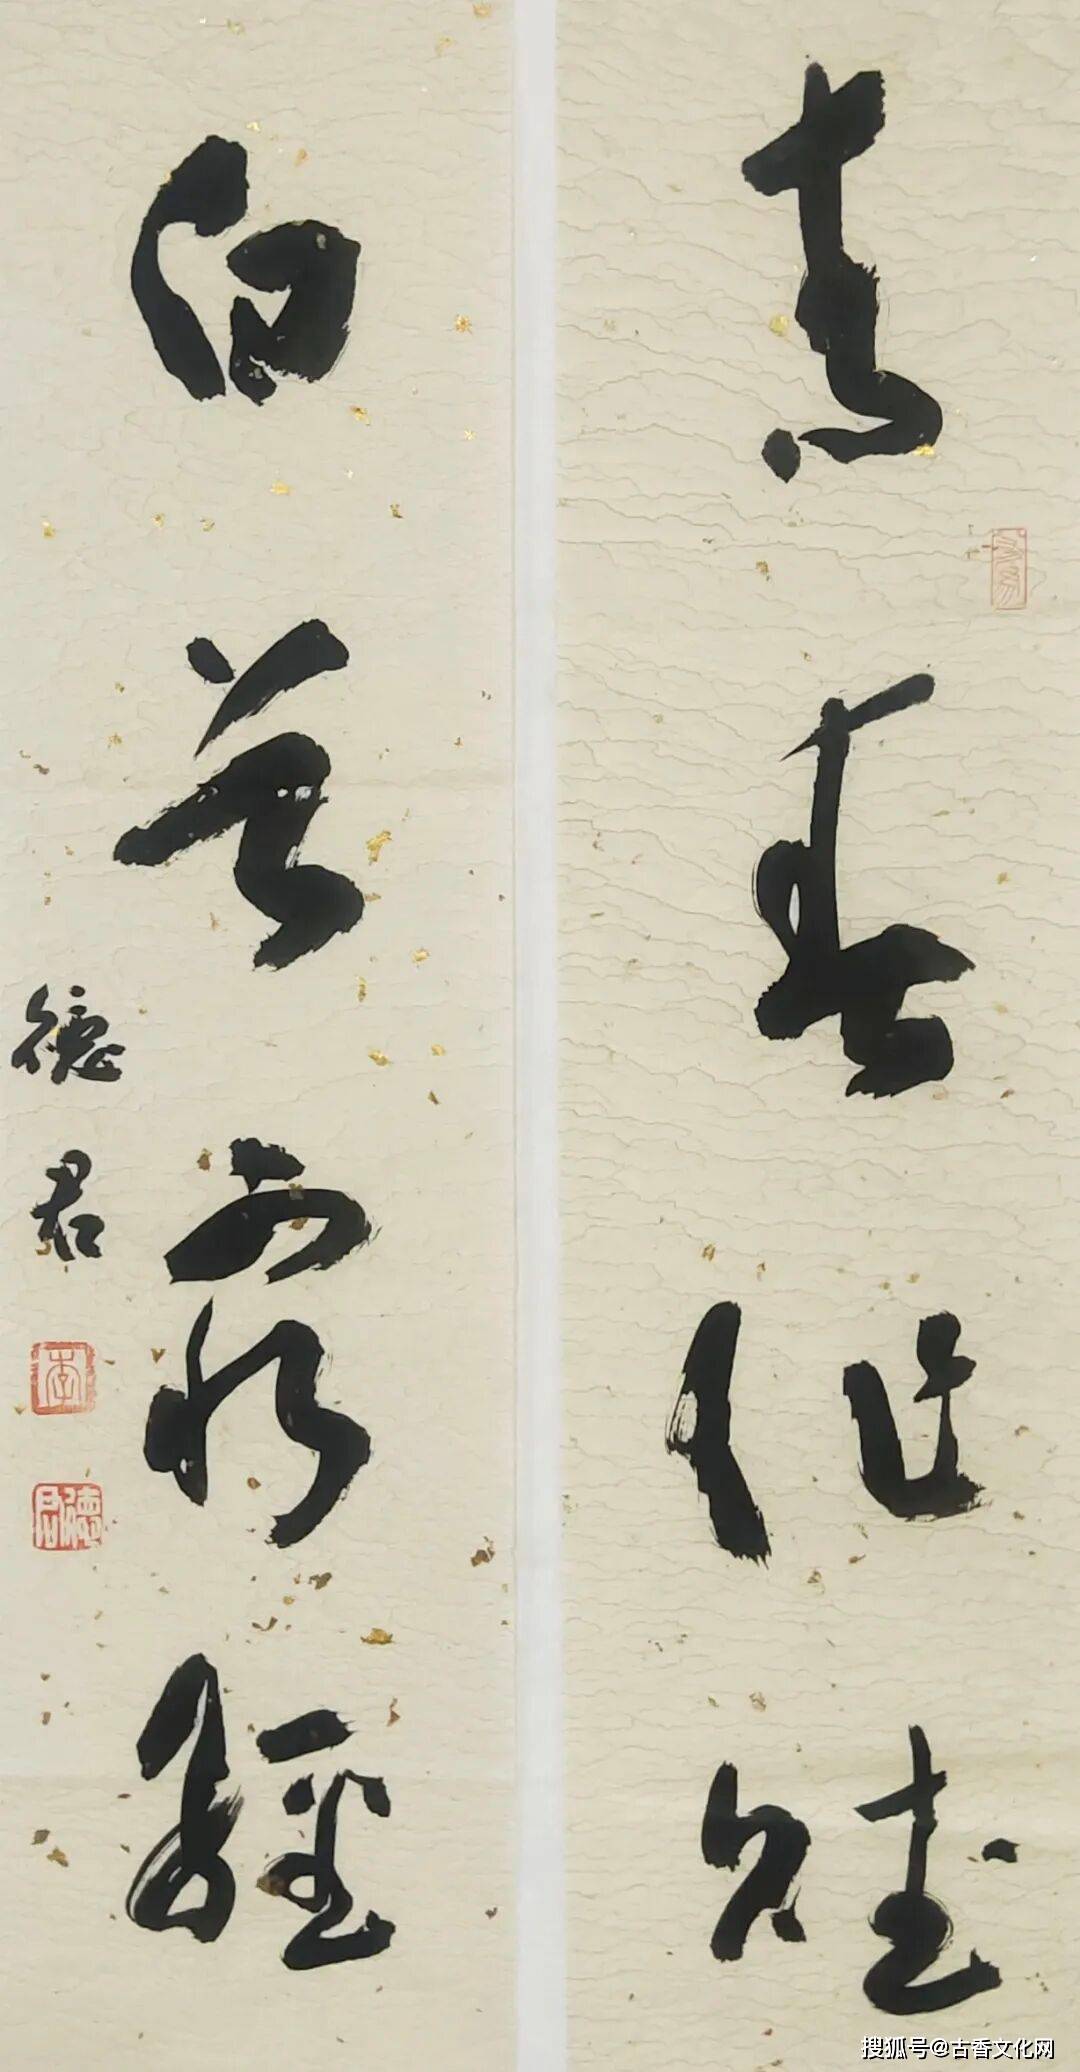 青春作賦
白首窮經
德君
李
德君
搜狐号@古香文化网